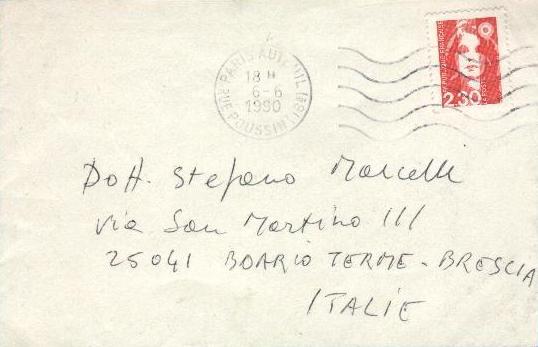 PARIS AUTEUIL
18 H
6-6
1990
RUE POUSSIN (16E)
REPUBLIQUE FRANÇAISE
2,30
LA POSTE
Dott. Stefano Marcelli
Via San Martino 111
25041 BOARIO TERME - BRESCIA
ITALIE